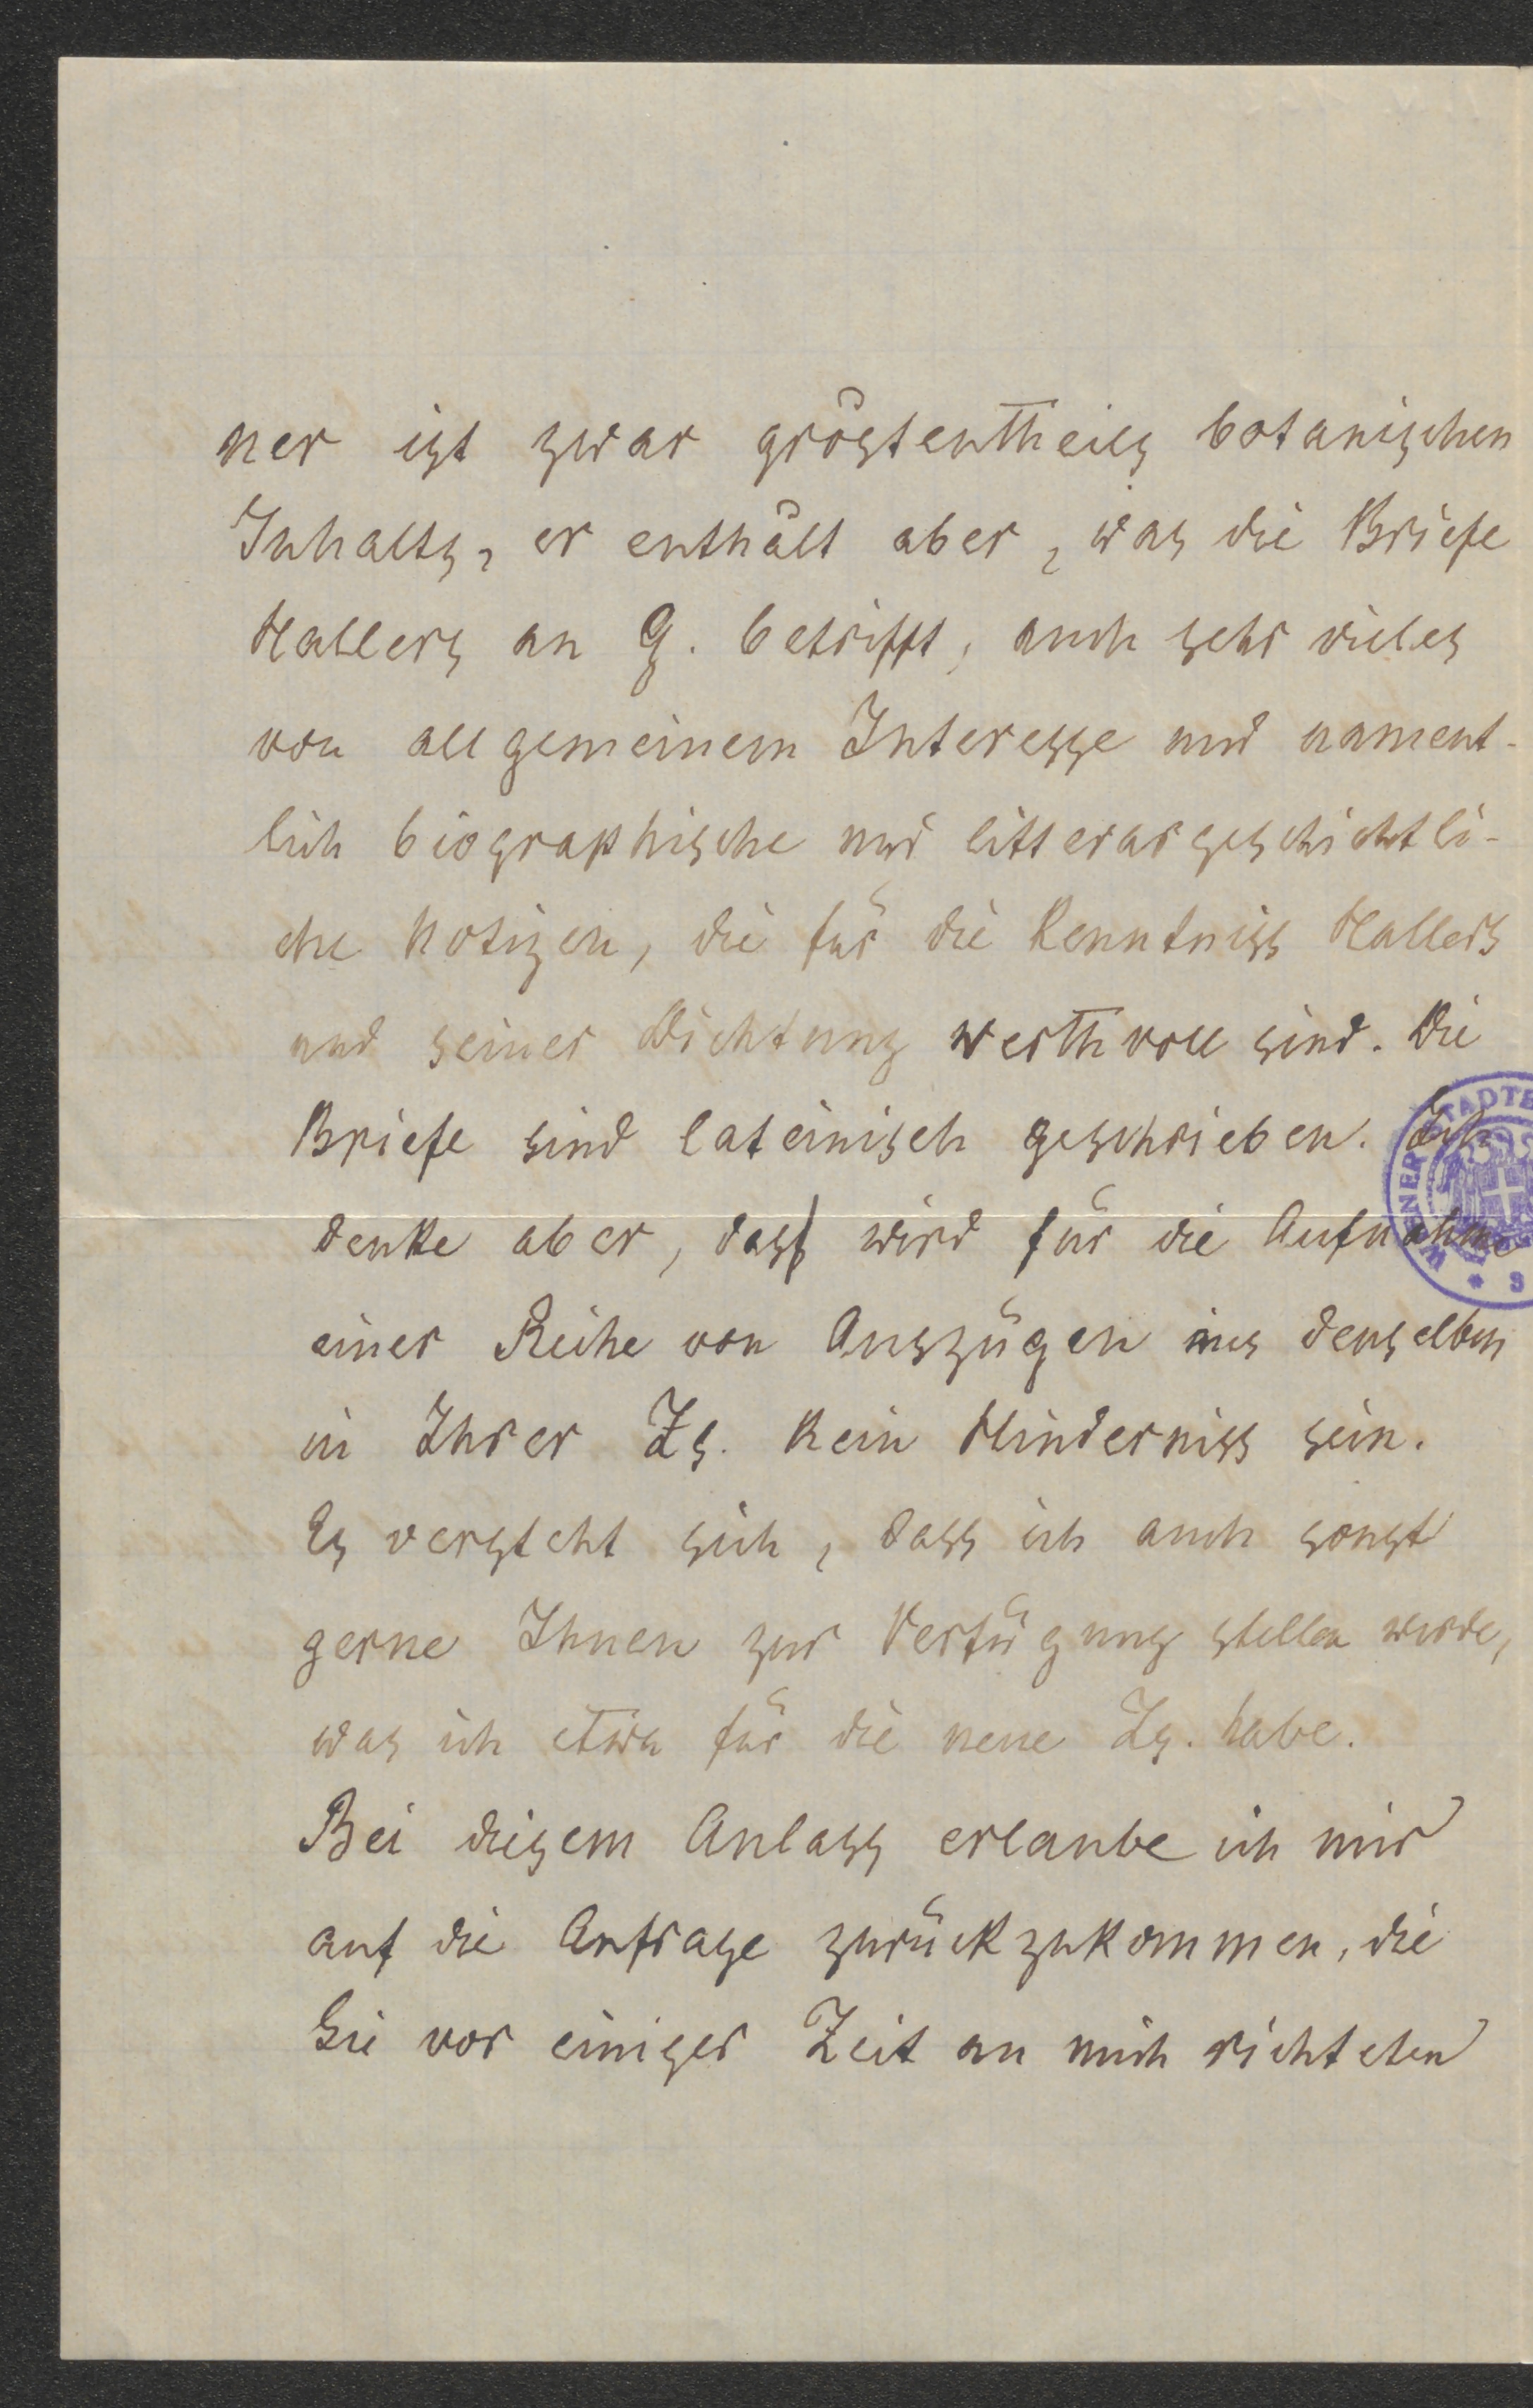 ner ist zwar gröstentheils botanischen
Inhalts, er enthält aber, was die Briefe
Hallers an G. betrifft, auch sehr vieles
von allgemeinem Interesse und nament-
lich biographische und litterargeschichtli-
che Notizen, die für die Kenntniss Hallers
und seiner Dichtung werthvoll sind. Die
Briefe sind lateinisch geschrieben. Ich
denke aber, dass wird für die Aufnahme
einer Reihe von Auszügen aus denselben
in Ihrer Zs. kein Hinderniss sein.
Es versteht sich, dass ich auch sonst
gerne Ihnen zur Verfügung stellen werde,
was ich etwa für die neue Zs. habe.
Bei diesem Anlass erlaube ich mir
auf die Anfrage zurückzukommen, die
Sie vor einiger Zeit an mich richteten